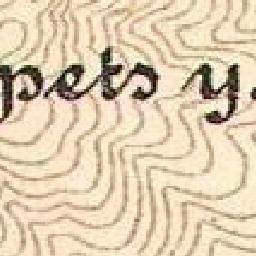 pets y.